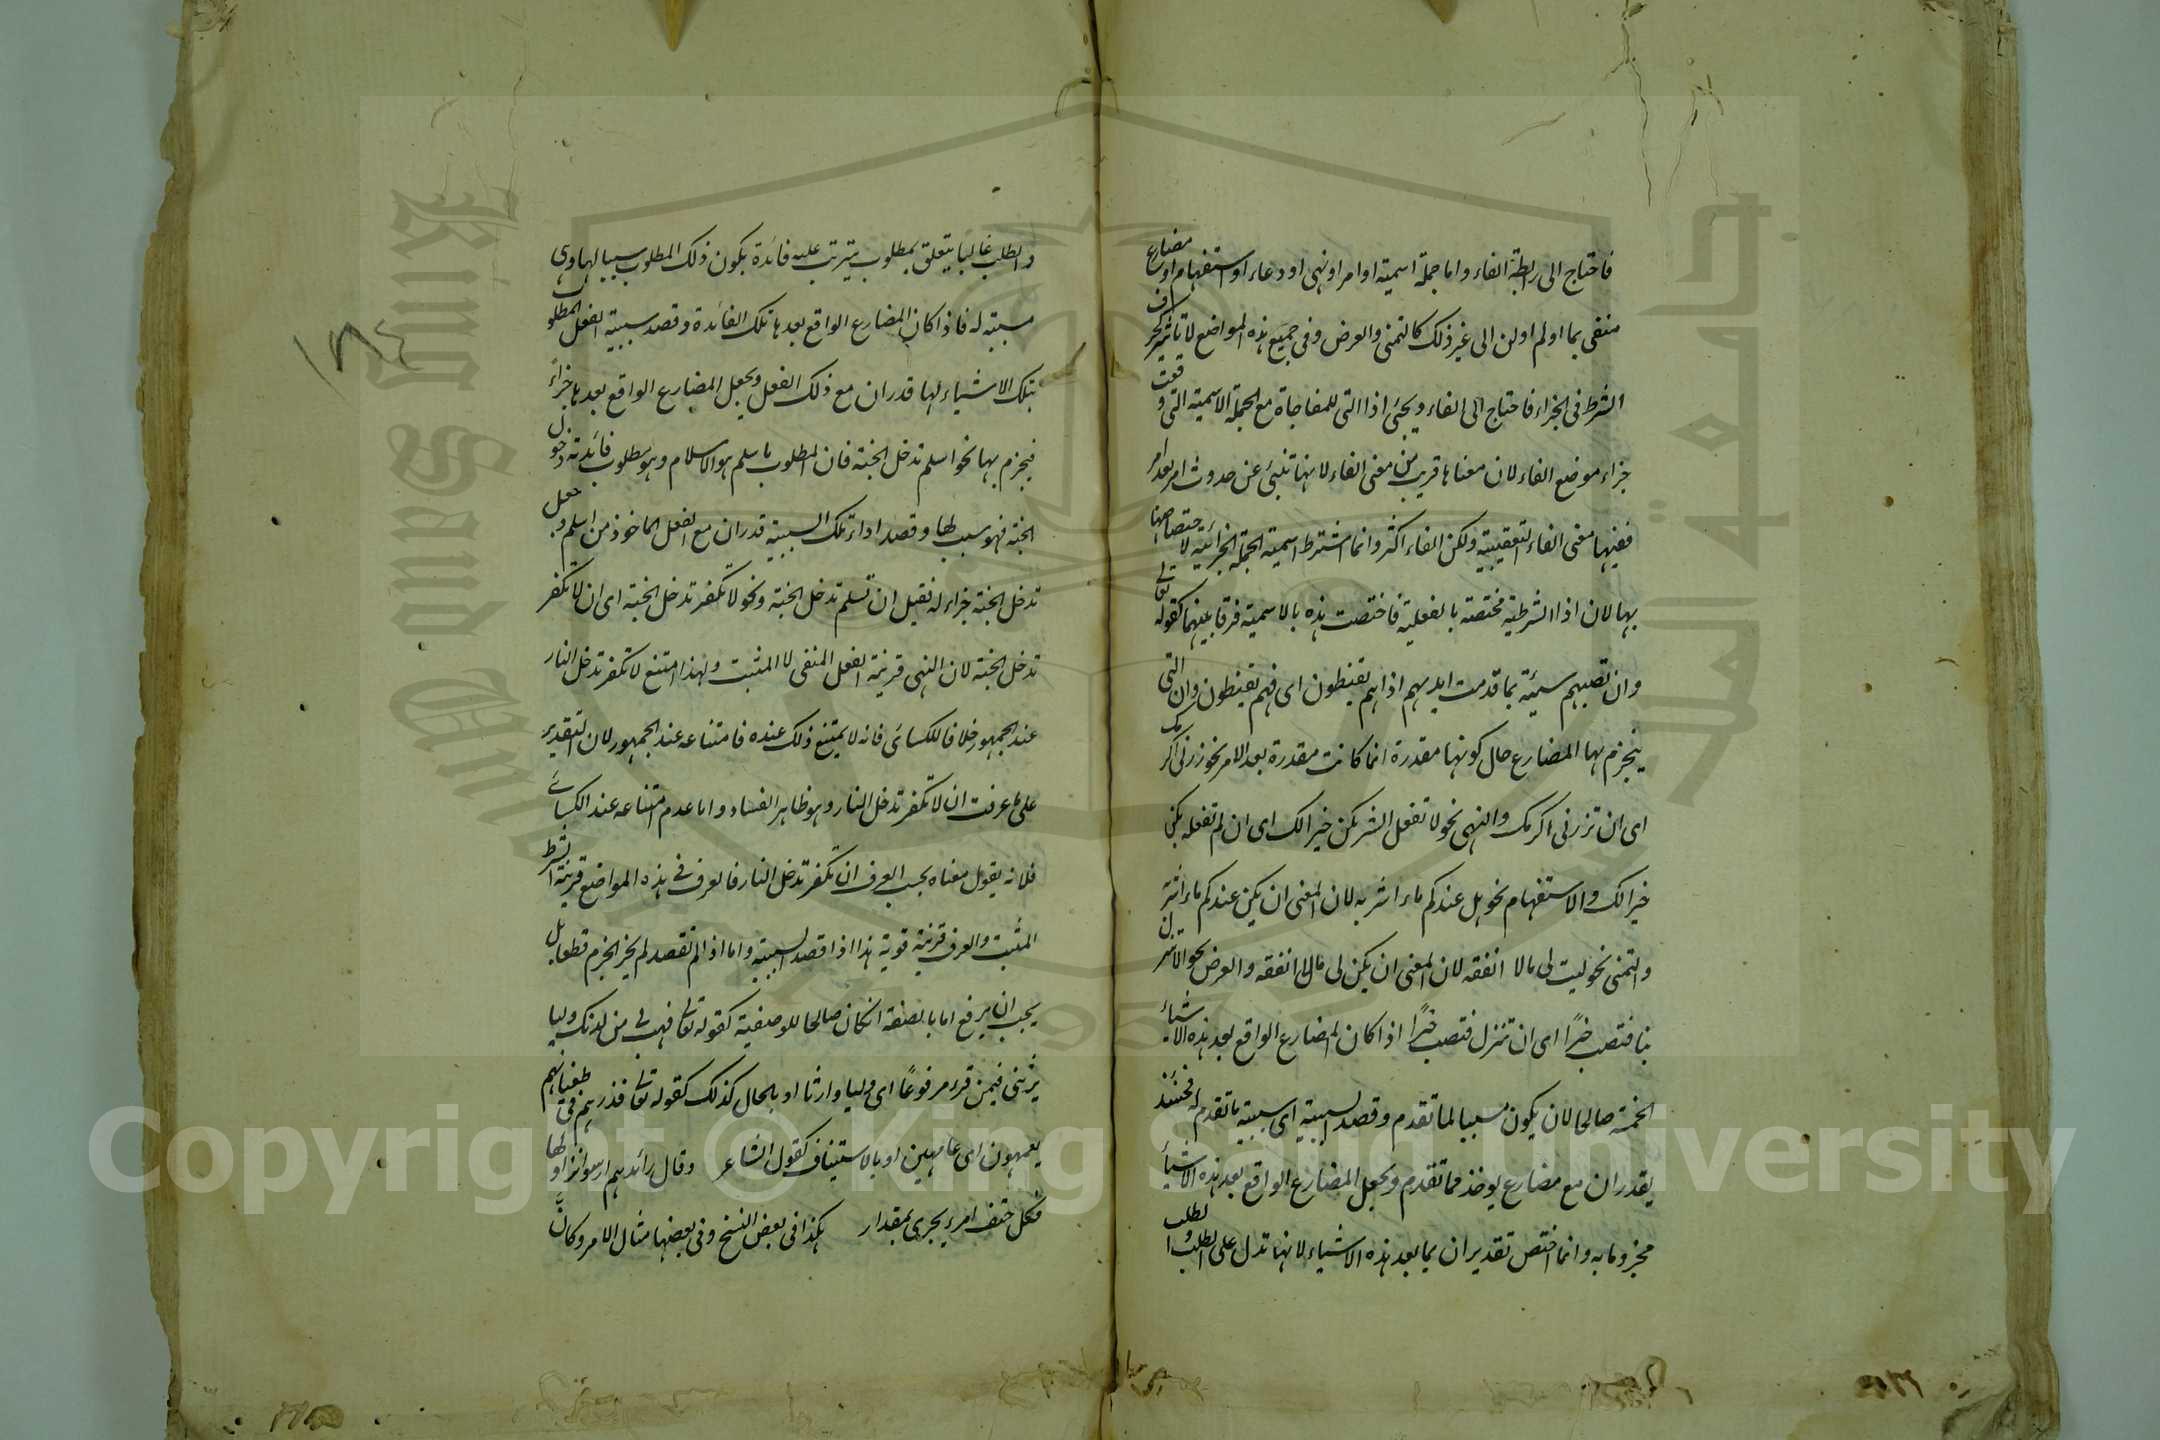 فاحتاج الى رابطة الفاء واما جملة اسمية او امر او نهى او دعاء او استفهام او مضارع
منفى بما او لم او لن الى غير ذلك كالتمنى والعرض وفى جميع هذه المواضع لا تاثير لحرف
الشرط فى الجزاء فاحتاج الى الفاء ويجئ اذا التى للمفاجاة مع الجملة الاسمية التى وقعت
جزاء موضع الفاء لان معناها قريب من معنى الفاء لانها تنبئ عن حدوث امر بعد امر
ففيها معنى الفاء التعقيبية ولكن الفاء اكثر وانما اشترط اسمية الجملة الجزائية لاختصاصها
بها لان اذا الشرطية مختصة بالفعلية فاختصت هذه بالاسمية فرقا بينهما كقوله تعالى
وان تصبهم سيئة بما قدمت ايديهم اذا هم يقنطون اى فهم يقنطون وان التى
ينجزم بها المضارع حال كونها مقدرة انما كانت مقدرة بعد الامر نحو زرنى اكرمك
اى ان تزرنى اكرمك والنهى نحو لا تفعل الشر يكن خيرا لك اى ان لم تفعله يكن
خيرا لك والاستفهام نحو هل عندكم ماء اشربه لان المعنى ان يكن عندكم ماء اشربه
والتمنى نحو ليت لى مالا انفقه لان المعنى ان يكن لى مال انفقه والعرض نحو الا تنزل
بنا فتصب خيرًا اى ان تنزل فتصب خيرًا اذا كان المضارع الواقع بعد هذه الاشياء
الخمسة صالحا لان يكون مسببا لما تقدم وقصد السببية اى سببية ما تقدم له فحينئذ
يقدر ان مع مضارع يوخذ مما تقدم ويجعل المضارع الواقع بعد هذه الاشياء
مجزوما به وانما اختص تقدير ان بما بعد هذه الاشياء لانها تدل على الطلب والطلب
والطلب غالبا يتعلق بمطلوب يترتب عليه فائدة يكون ذلك المطلوب سببا لها وهى
مسببة له فاذا كان المضارع الواقع بعدها تلك الفائدة وقصد سببية الفعل المطلوب
بتلك الاشياء لها قدر ان مع ذلك الفعل ويجعل المضارع الواقع بعدها جزاء
فيجزم بها نحو اسلم تدخل الجنة فان المطلوب باسلم هو الاسلام وهو مطلوب فائدته دخول
الجنة فهو سبب لها وقصد اداء تلك السببية قدر ان مع الفعل الماخوذ من اسلم وجعل
تدخل الجنة جزاء له فقيل ان تسلم تدخل الجنة ونحو لا تكفر تدخل الجنة اى ان لا تكفر
تدخل الجنة لان النهى قرينة الفعل المنفى لا المثبت ولهذا امتنع لا تكفر تدخل النار
عند الجمهور خلافا للكسائى فانه لا يمتنع ذلك عنده فامتناعه عند الجمهور لان التقدير
على ما عرفت ان لا تكفر تدخل النار وهو ظاهر الفساد واما عدم امتناعه عند الكسائى
فلانه يقول معناه بحسب العرف ان تكفر تدخل النار فالعرف فى هذه المواضع قرينة الشرط
المثبت والعرف قرينة قوية هذا اذا قصد السببية واما اذا لم تقصد لم يجز الجزم قطعا بل
يجب ان يرفع اما بالصفة ان كان صالحا للوصفية كقوله تعالى فهب لى من لدنك وليا
يرثنى فيمن قرء مرفوعًا اى وليا وارثا او بالحال كذلك كقوله تعالى فذرهم فى طغيانهم
يعمهون اى عامهين او بالاستيناف كقول الشاعر وقال رائدهم ارسوا نزاولها
فكل حتف امرء يجرى بمقدار هكذا فى بعض النسخ وفى بعضها مثال الامر وكان
١٨٤